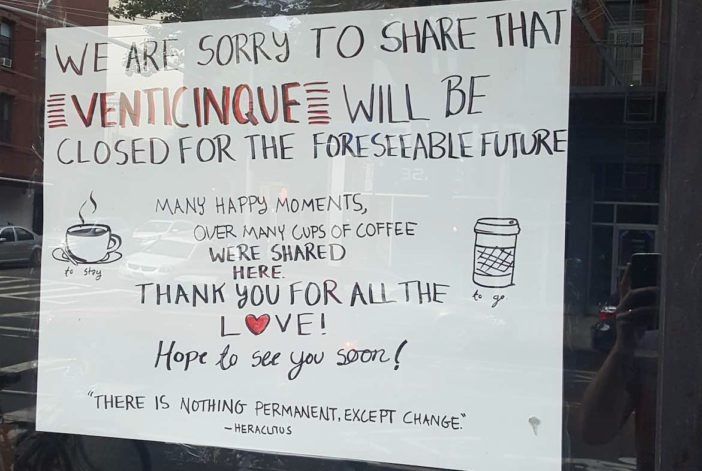 WE ARE SORRY TO SHARE THAT
VENTICINQUE WILL BE
CLOSED FOR THE FORESEEABLE FUTURE
MANY HAPPY MOMENTS,
OVER MANY CUPS OF COFFEE
WERE SHARED
HERE.
to stay
THANK YOU FOR ALL THE
to go
L♥VE!
Hope to see you soon!
"THERE IS NOTHING PERMANENT, EXCEPT CHANGE."
-HERACLITUS